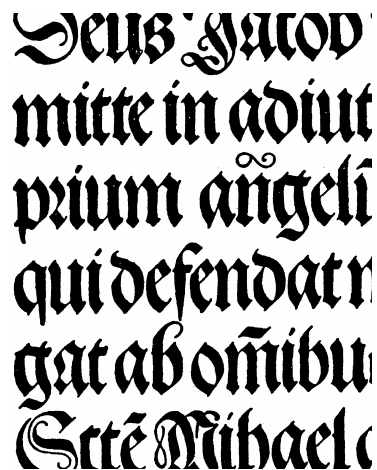 Deus Jacob
mitte in adiut
prium añgelū
qui defendat n
gat ab om̄ibu
Sctē Mihael